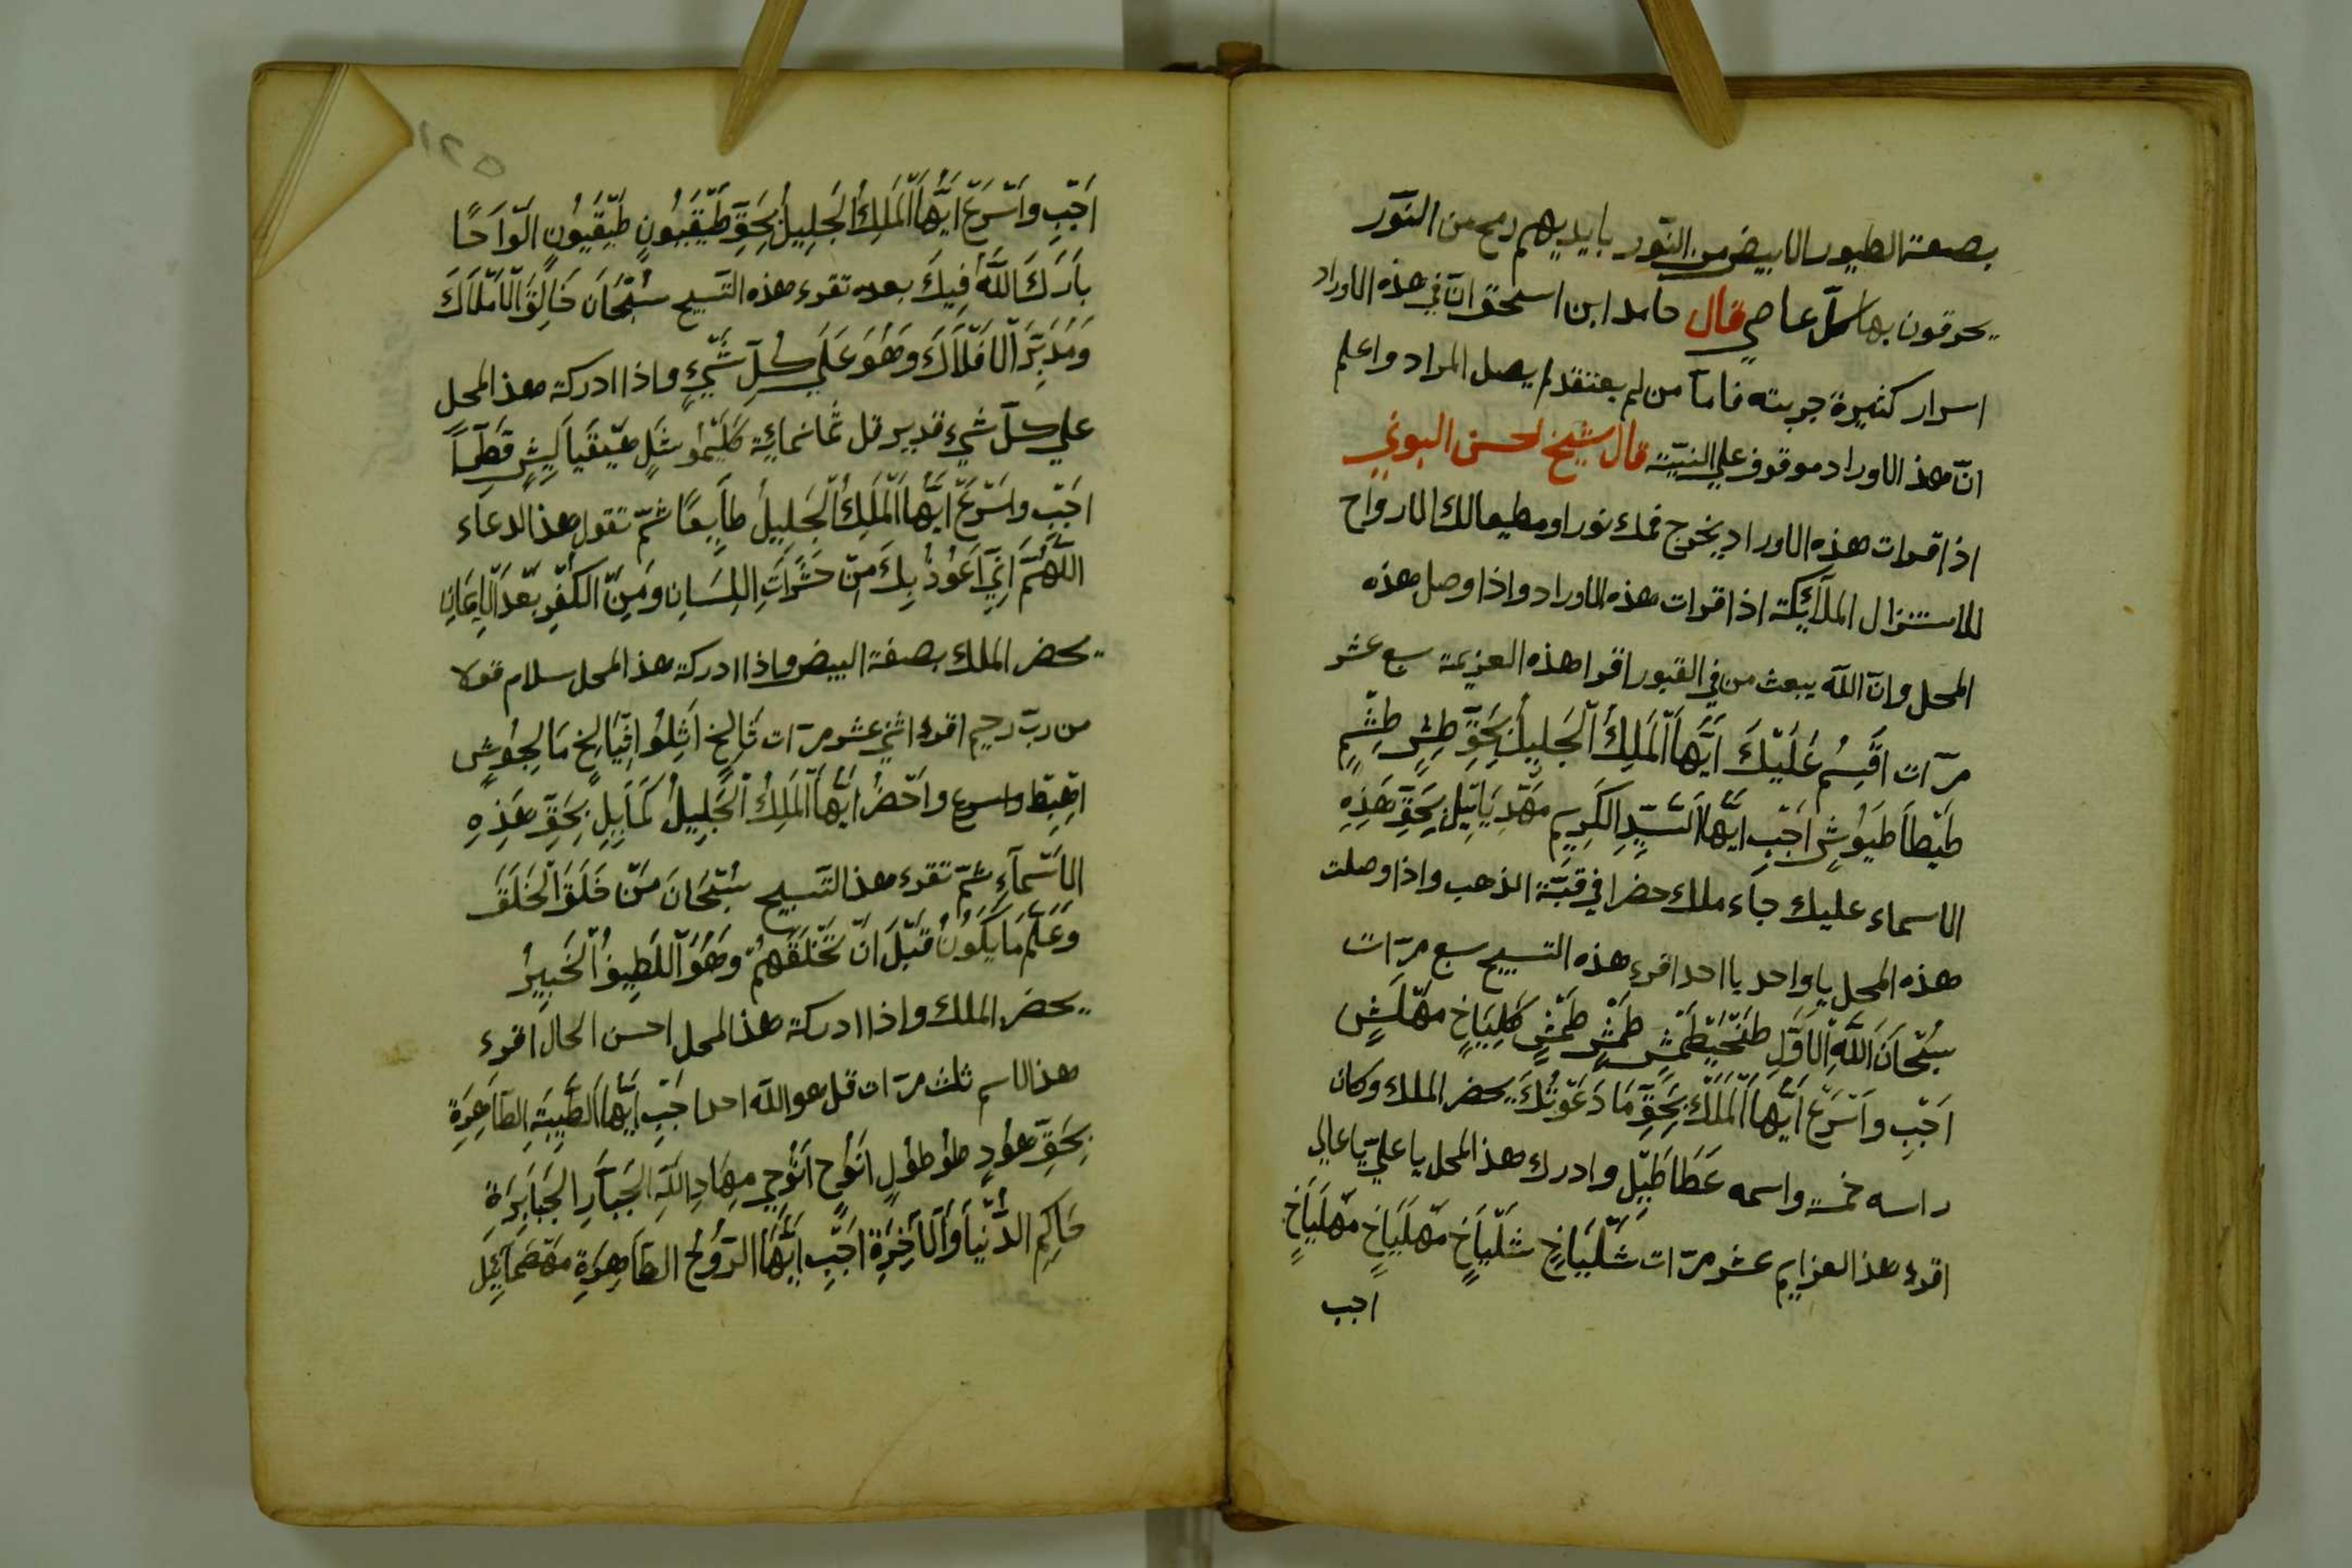 بصفة الطيور الابيض من النّور بايديهم رمح من النّور
يحرقون بها كلّ عاصي قال حامد ابن اسحق انّ في هذه الاوراد
اسرار كثيرة جربته فامّا من لم يعتقد لم يصل المراد واعلم
انّ هذ الاوراد موقوف علي النيّة قال شيخ لحسن البوني
اذا قرات هذه الاوراد يخرج فمك نورا ومطيعا لك الارواح
للاستنزال الملآئكة اذا قرات هذه الاوراد واذا وصل هذه
المحل وانّ اللّه يبعث من في القبور اقرا هذه العزيمة سبع عشر
مرّات اَقْسِمُ عَلَيْكَ اَيُّهَا الْمَلِكُ الْجَلِيلُ بِحَقِّ طِشٍ طِشْمٍ
طَيْطَا طَيُوشٍ اَجِبْ اَيُّهَا السَّيِّدِ الكَرِيمِ مَهْدِيَائِيلُ بِحَقِّ هَذِهِ
الاسماء عليك جاء ملك حضرا في قبّة الذهب واذا وصلت
هذه المحل يا واحد يا احد اقرء هذه التسبيح سبع مرّات
سُبْحَانَ اللّهِ الْاَوَّلِ طَمْشٍ طَمْشٍ كَلِيَاخٍ مَهْلَشٍ
اَجِبْ وَاَسْرَعْ اَيُّهَا الْمَلَكُ بِحَقِّ مَا دَعَوْتُكَ يحضر الملك وكان
راسه خمسة واسمه عَطَاطَيِيل وادرك هذ المحل يا عليّ يا عالي
اقرء هذ العزايم عشر مرّات شَلْيَاخٍ شَلْيَاخٍ مَهْلَيَاخٍ مَهْلَيَاخٍ
اجب
١٢٥
اَجِبْ وَاَسْرَعْ اَيُّهَا الْمَلِكُ الْجَلِيلُ بِحَقِّ طَيْقَبُونٍ طَيْقَيُونٍ اَلْوَاحًا
بَارَكَ اللّهُ فِيكَ بعده تقرء هذه التّسبيح سُبْحَانَ خَالِقُ الْاَمْلَاكَ
وَمُدَبِّرَ الْاَفْلَاكَ وَهُوَ عَلَي كُلِّ شَيْءٍ واذا ادركة هذ المحل
علي كلّ شيء قدير قل ثمانمائية
اَجِبْ وَاَسْرَعْ اَيُّهَا الْمَلِكُ الْجَلِيلُ طَايِعًا ثمّ تقول هذ الدعاء
اللّهُمَّ اِنِّي اَعُوذُ بِكَ مِنْ حَشَرَاتِ اللِسَانِ وَمِنَ الكُفْرِ بَعْدَ الْاِيمَانِ
يحضر الملك بصفة البيض واذا ادركة هذ المحل سلام قولا
من ربّ رحيم اقرء اثني عشر مرّات شَالِخٍ
اِهْبِطْ واسرع وَاَحْضُرْ اَيُّهَا الْمَلِكُ الْجَلِيلُ بِحَقِّ هَذِهِ
الْاَسْمَآءِ ثمّ تقرء هذ التّسبيح سُبْحَانَ مَنْ خَلَقَ الْخَلَقَ
وَعَلَمَ مَا يَكُونُ قَبْلَ اَنْ تَخْلَقَهُمْ وَهُوَ اللَطِيفُ الْخَبِيرُ
يحضر الملك واذا ادركة هذ المحل احسن الحال اقرء
هذ الاسم ثلث مرّات قل هو اللّه احد اَجِبْ اَيُّهَا الطَّيِّبَةِ الطَّاهِرَةِ
بِحَقِّ هُودٍ طُوطُولٍ اَنُوحٍ اَنُوحِي مِهَادِ اللّهِ الجَبَّارِ الجَبَابِرَةِ
حَاكِمِ الدُّنْيَا وَالْآخِرَةِ اَجِبْ اَيُّهَا الرُّوحُ الطَّاهِرَةِ مَهْصَمَآئِيلَ